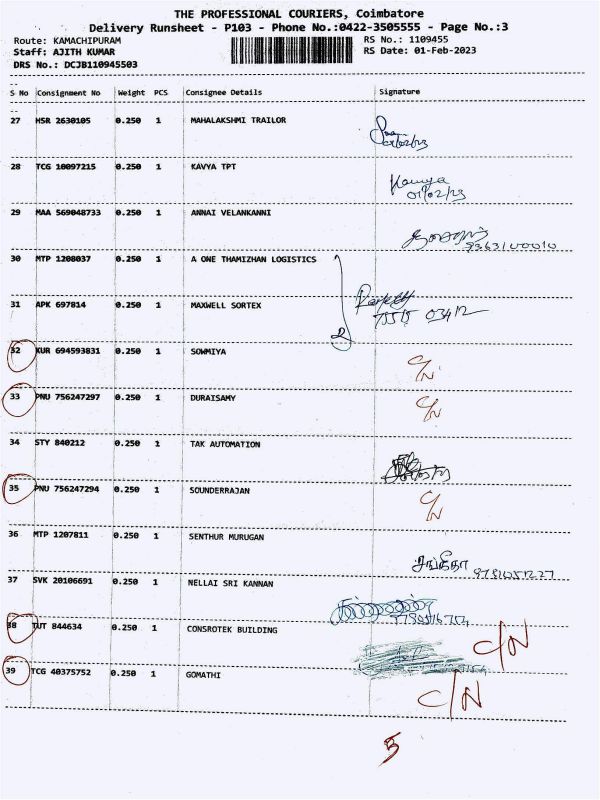 THE PROFESSIONAL COURIERS, Coimbatore
Delivery Runsheet - P103 - Phone No.:0422-3505555 - Page No.:3
Route: KAMACHIPURAM RS No.: 1109455
Staff: AJITH KUMAR RS Date: 01-Feb-2023
DRS No.: DCJB110945503
S No Consignment No Weight PCS Consignee Details Signature
27 HSR 2630105 0.250 1 MAHALAKSHMI TRAILOR
28 TCG 10097215 0.250 1 KAVYA TPT Kavya
01/02/23
29 MAA 569048733 0.250 1 ANNAI VELANKANNI
30 MTP 1208037 0.250 1 A ONE THAMIZHAN LOGISTICS
31 APK 697814 0.250 1 MAXWELL SORTEX
2
32 KUR 694593831 0.250 1 SOWMIYA C/N
33 PNU 756247297 0.250 1 DURAISAMY C/N
34 STY 840212 0.250 1 TAK AUTOMATION
35 PNU 756247294 0.250 1 SOUNDERRAJAN C/N
36 MTP 1207811 0.250 1 SENTHUR MURUGAN
சங்கீதா
37 SVK 20106691 0.250 1 NELLAI SRI KANNAN
38 TUT 844634 0.250 1 CONSROTEK BUILDING C/N
39 TCG 40375752 0.250 1 GOMATHI C/N
5